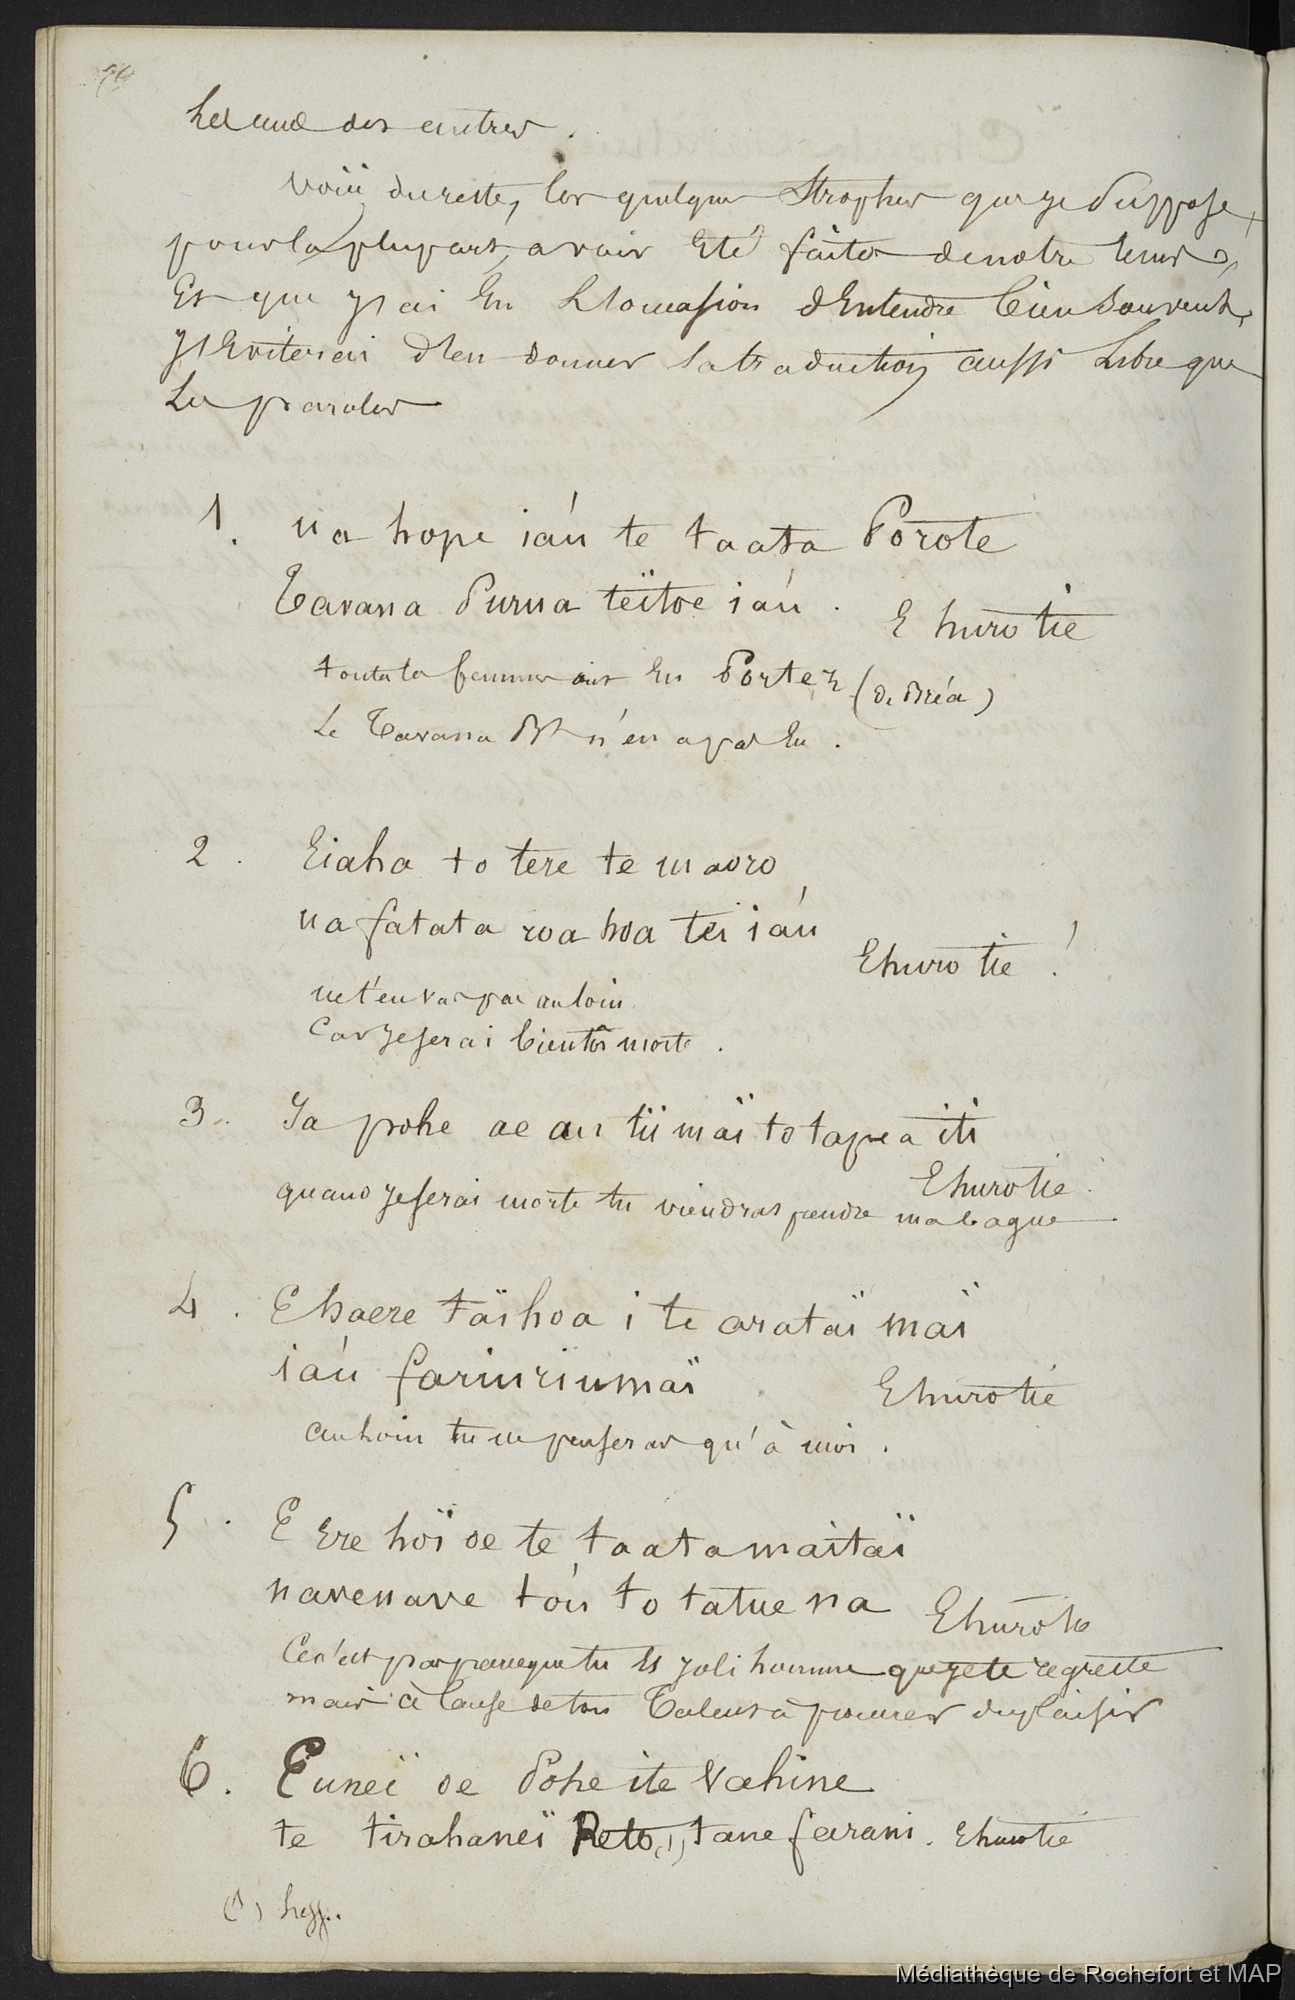 96
les unes des autres.
voici du reste, les quelques strophes que je suppose,
pour la plupart, avoir été faites de notre temps,
Et que j'ai eu l'occasion d'entendre bien souvent,
j'éviterai d'en donner la traduction aussi libre que
les paroles
1. ua hope iáu te taata Porote
Tavana Purua teïtoe iáu. E huro tie
toutes les femmes ont eu Portez (de Bréa)
Le Tavana Bt n'en a pas eu.
2. Eiaha to tere te maoro
ua fatata roa hoa tei iáu
Ehuro tie !
ne t'en vas pas au loin
Car je serai bientôt morte.
3. Ja pohe ae au tii mai to tapea iti
Ehurotie
quand je serai morte tu viendras prendre ma bague
4. E haere taïhoa i te arataï maï
iáu fariuriumaï Ehurotie
au loin tu ne penseras qu'à moi.
5. E Ere hoï oe te taata maitaï
navenave tóu to tatue na Ehuroti
Ce n'est pas parce que tu es joli homme que je te regrette
mais à Cause de ton Talent à procurer du plaisir
6. Euneï oe Pohe ite Vahine
te tirahaneï Reto (1) tane farani. Ehurotie
(1)
Médiathèque de Rochefort et MAP